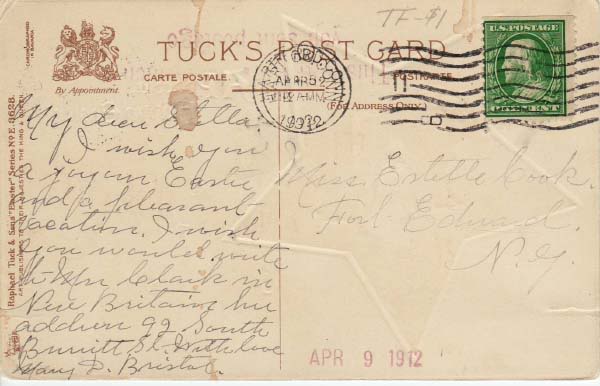 TF-$1
TUCK'S POST CARD
By Appointment.
CARTE POSTALE.
POSTKARTE
(For Address Only)
U.S. POSTAGE
HARTFORD, CONN.
APR 5
12 M
1912
Raphael Tuck & Sons' "Easter" Series No E. 4628.
My dear Estella
I wish you
a joyous Easter
and a pleasant
vacation. I wish
you would write
to Mr Clark in
New Britain his
address 92 South
Burritt St. With love
Mary D. Bristol.
Miss Estelle Cook.
Fort Edward.
N.Y.
APR 9 1912